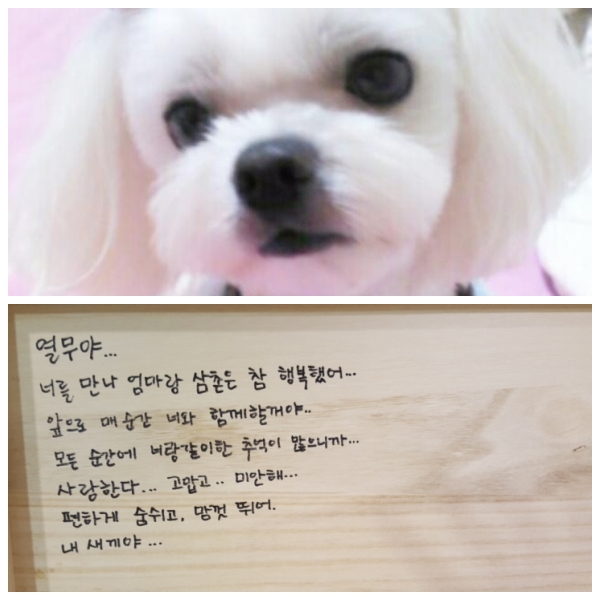 열무야...
너를 만나 엄마랑 삼촌은 참 행복했어...
앞으로 매 순간 너와 함께할꺼야..
모든 순간에 너랑같이한 추억이 많으니까...
사랑한다... 고맙고.. 미안해...
편하게 숨쉬고, 맘껏 뛰어.
내 새끼야...